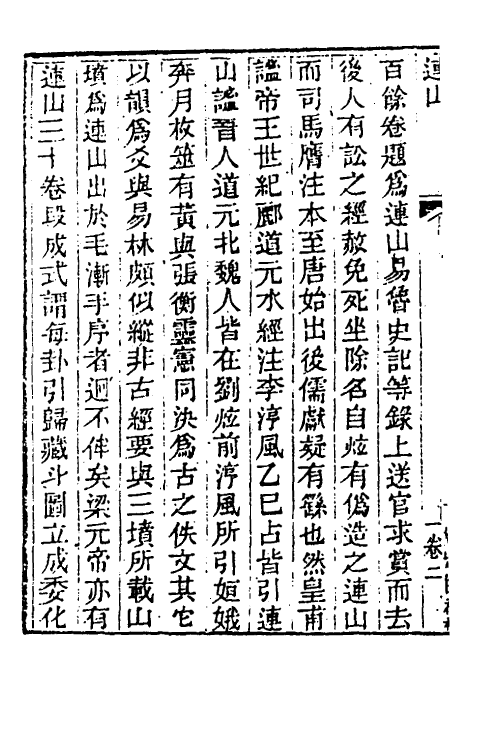 連山
卷二
百餘卷題爲連山易魯史記等錄上送官求賞而去
後人有訟之經赦免死坐除名自炫有僞造之連山
而司馬膺注本至唐始出後儒獻疑有繇也然皇甫
謐帝王世紀酈道元水經注李淳風乙巳占皆引連
山謐晉人道元北魏人皆在劉炫前淳風所引姮娥
奔月枚筮有黃與張衡靈憲同決爲古之佚文其它
以韻爲爻與易林頗似縱非古經要與三墳所載山
墳爲連山出於毛漸手序者迥不侔矣梁元帝亦有
連山三十卷段成式謂每卦引歸藏斗圖立成委化